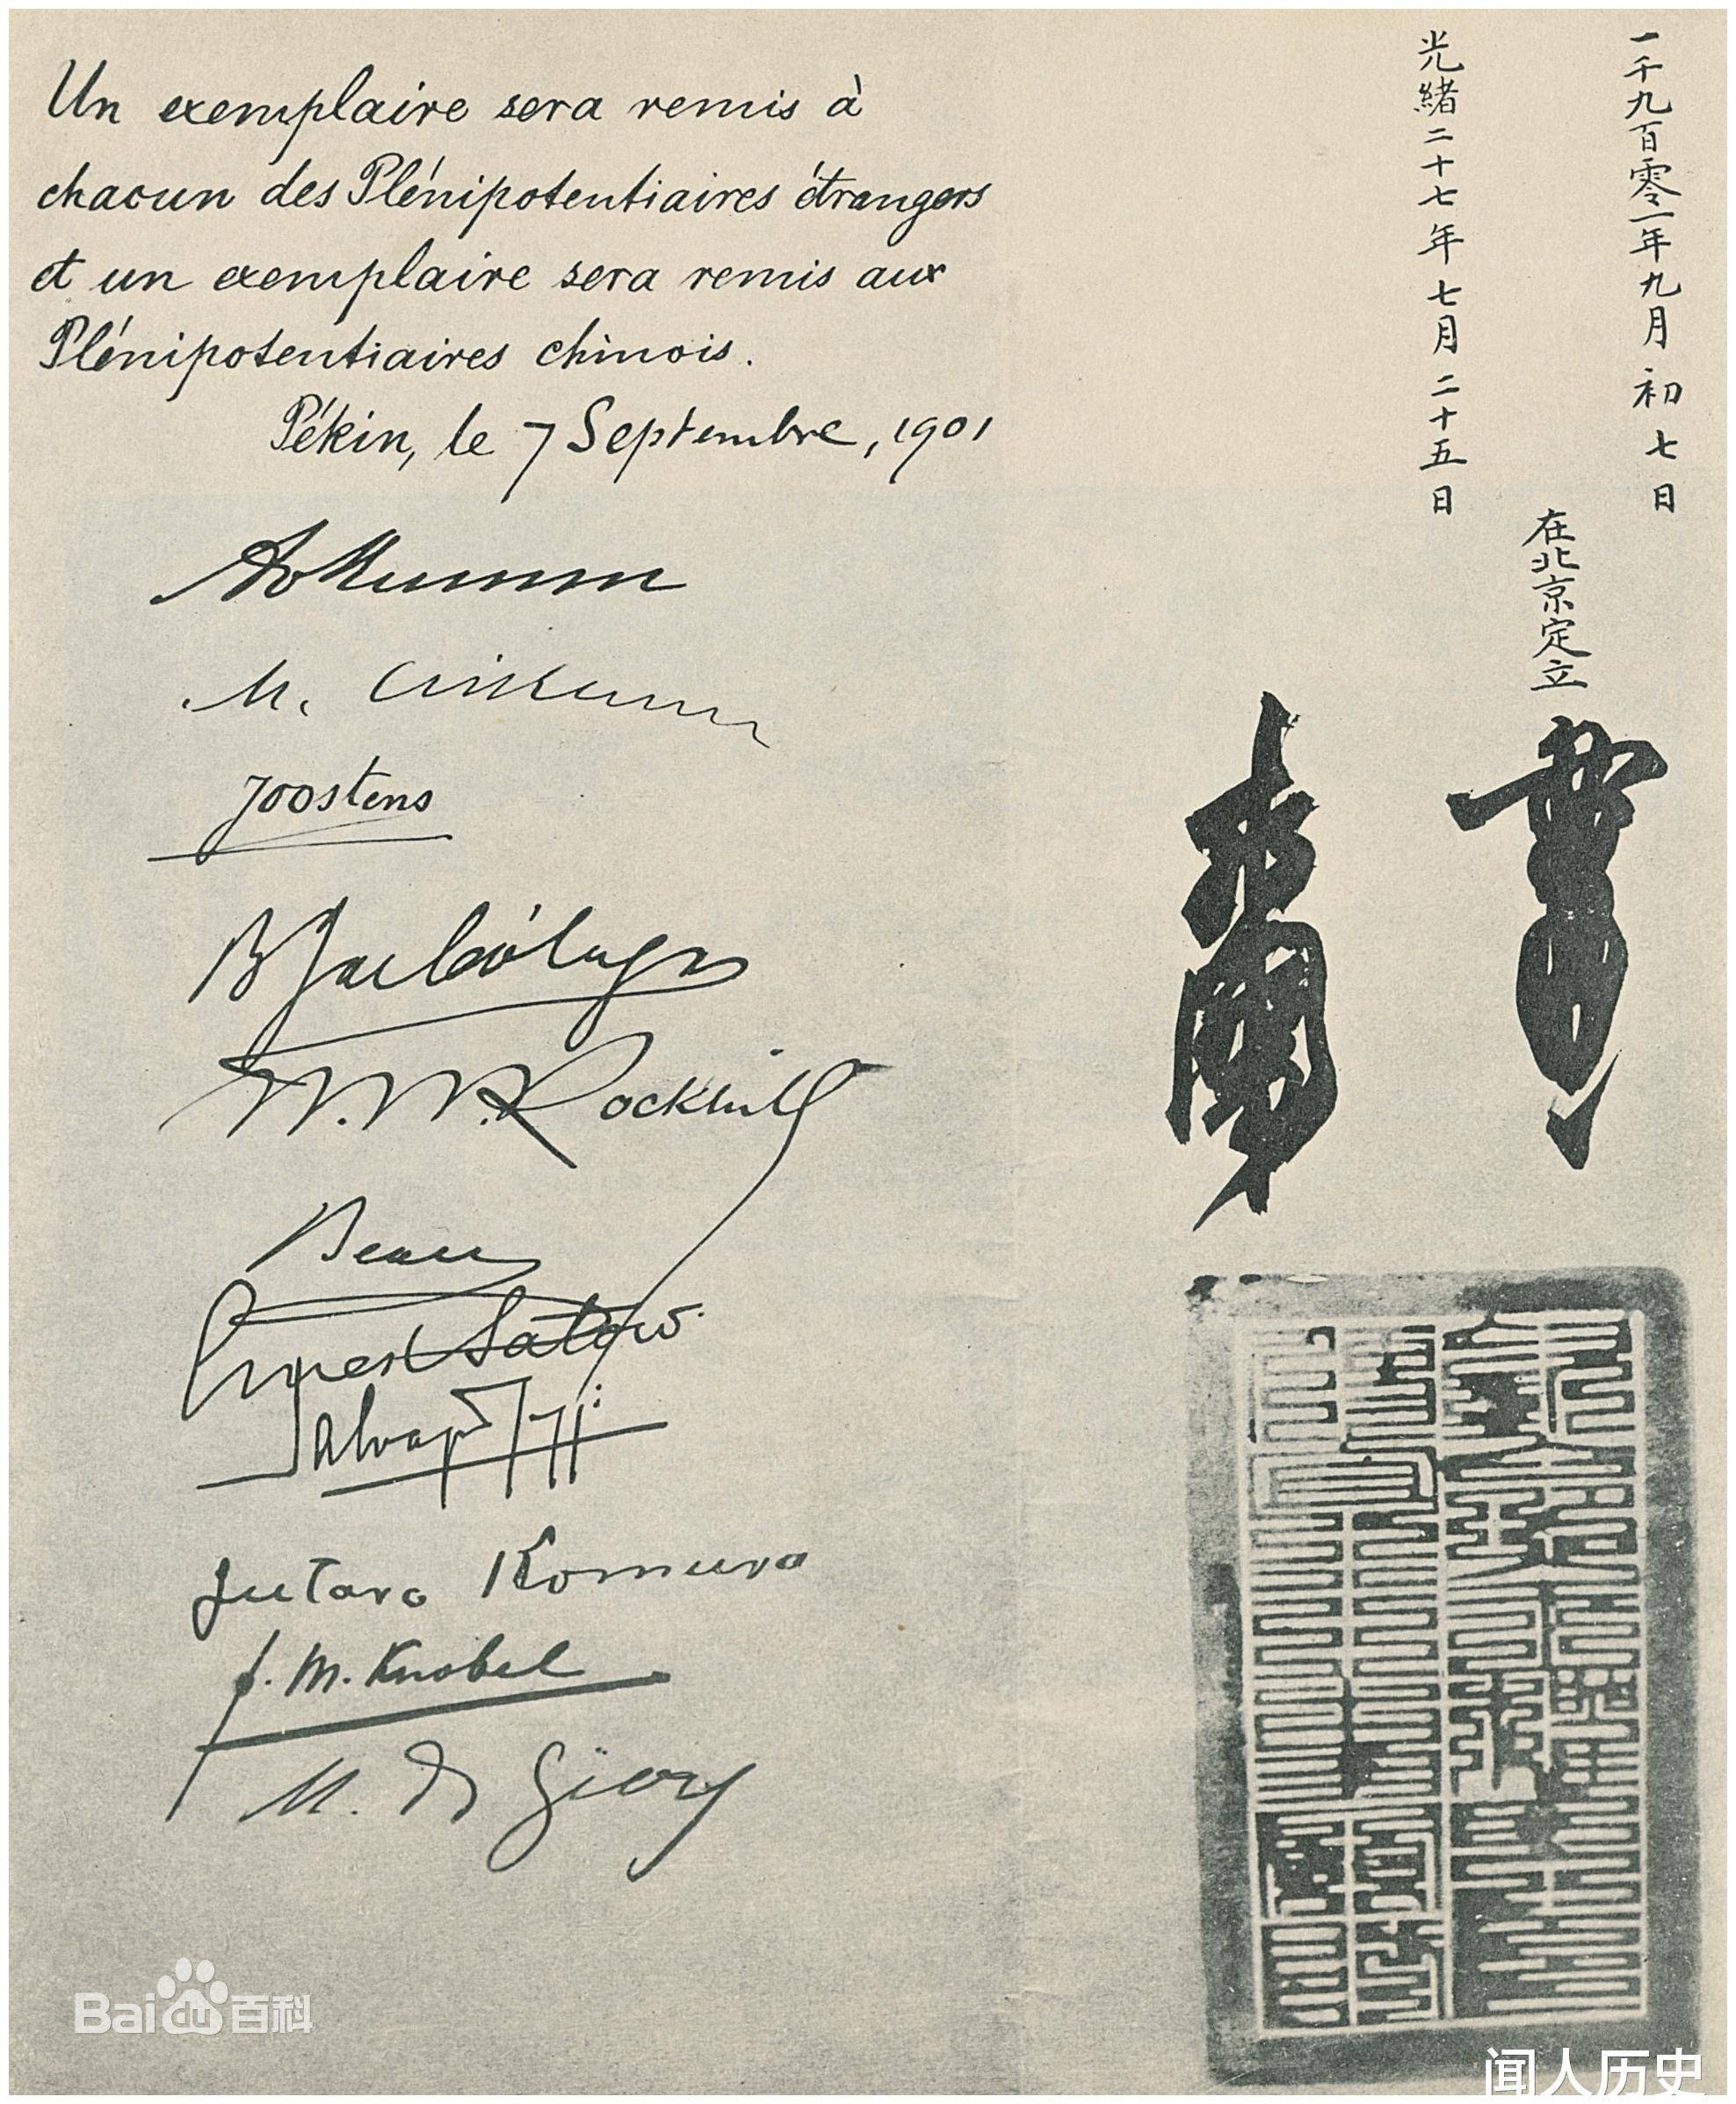 Un exemplaire sera remis à
chacun des Plénipotentiaires étrangers
et un exemplaire sera remis aux
Plénipotentiaires chinois.
Pékin, le 7 Septembre, 1901
Joostens
W. W. Rockhill
Beau
Ernest Satow
Salvago Raggi
Jutaro Komura
F. M. Knobel
M. de Giers
一千九百零一年九月初七日
光緒二十七年七月二十五日
在北京定立
Bai du 百科
闻人历史